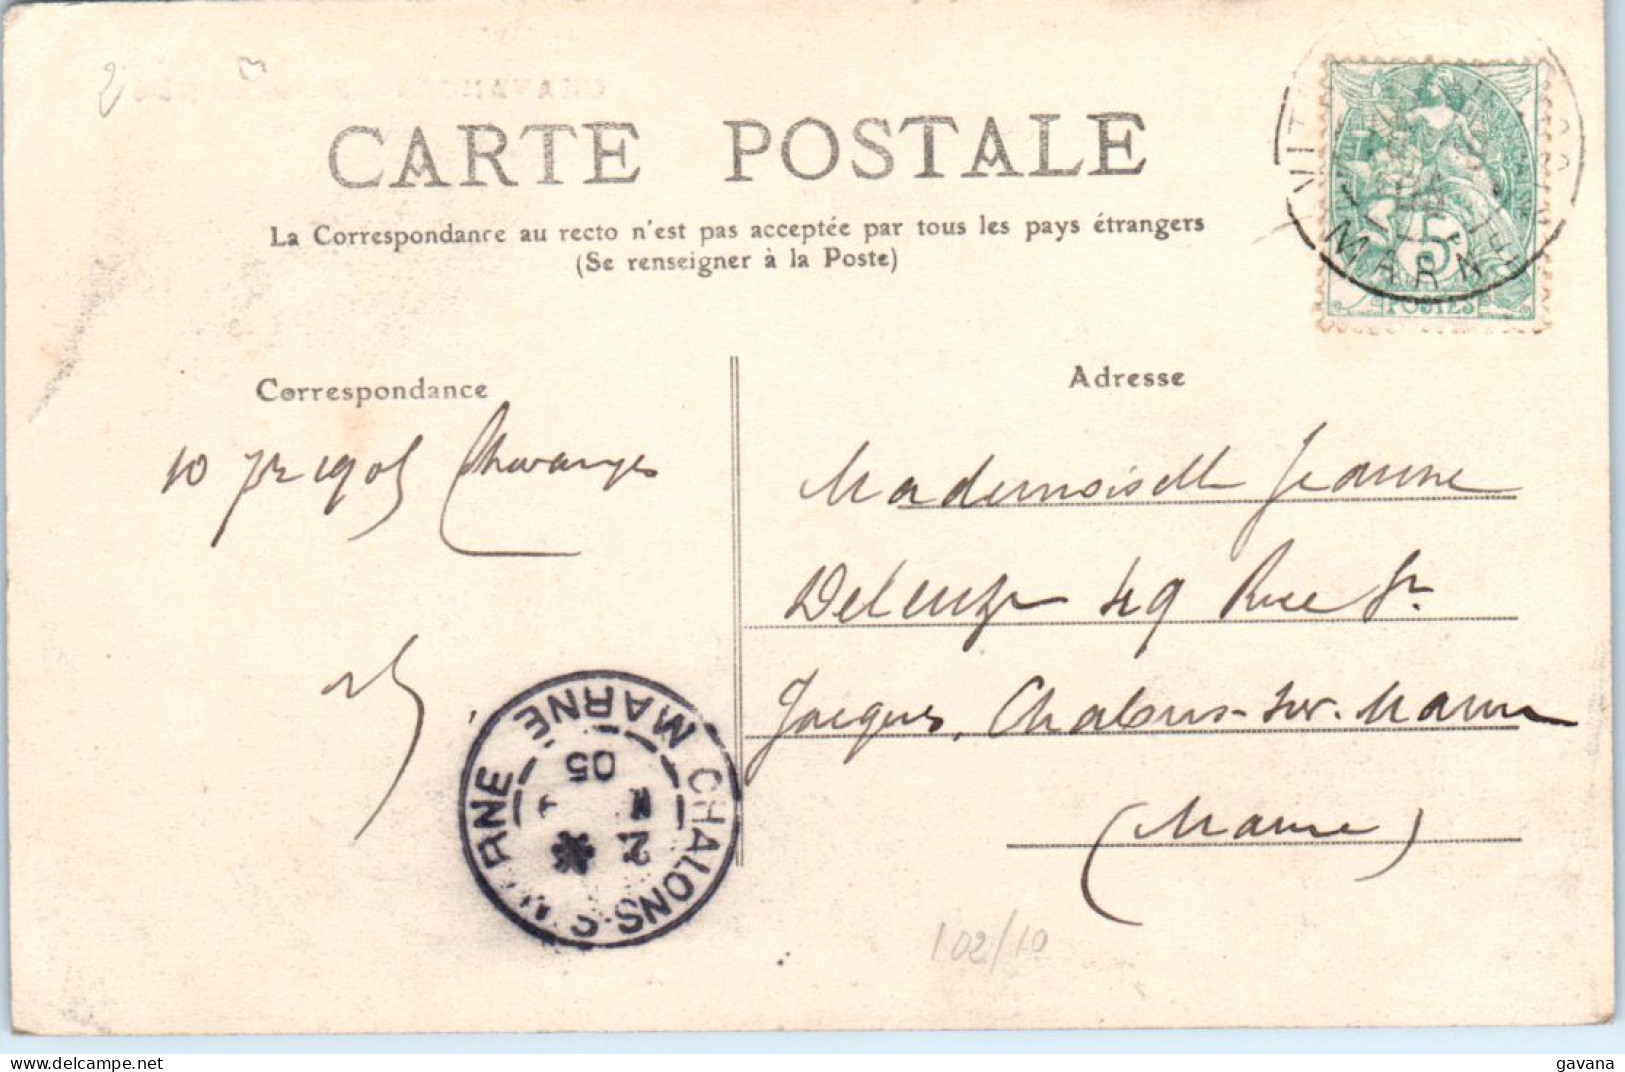 CARTE POSTALE
La Correspondance au recto n'est pas acceptée par tous les pays étrangers
(Se renseigner à la Poste)
5
POSTES
MARNE
Correspondance
Adresse
10 1905 Chavanges
Mademoiselle Jeanne
49 Rue St
Jacques, Chalons-sur-Marne
(Marne)
CHALONS-S MARNE
MARNE
2
05
102/10
gavana